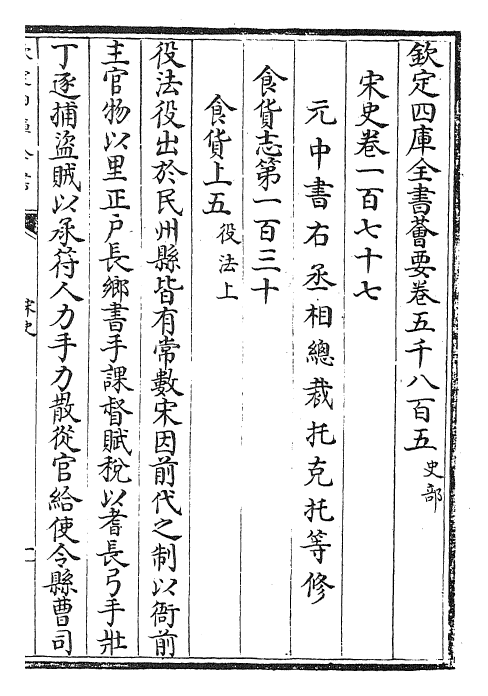 欽定四庫全書薈要卷五千八百五 史部
宋史卷一百七十七
元中書右丞相總裁托克托等修
食貨志第一百三十
食貨上五 役法上
役法役出於民州縣皆有常數宋因前代之制以衙前
主官物以里正户長鄉書手課督賦稅以耆長弓手壯
丁逐捕盜賊以承符人力手力散從官給使令縣曹司
宋史